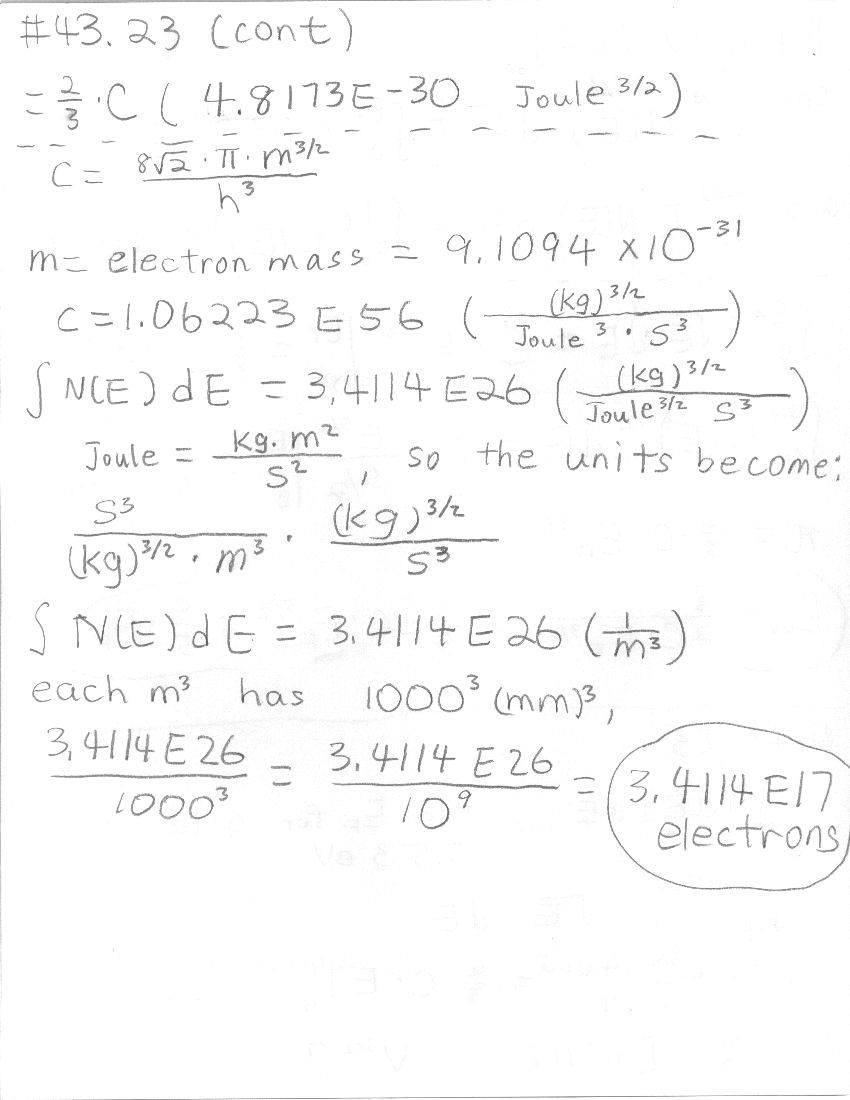 #43.23 (cont)
= 2/3 · C ( 4.8173E-30 Joule^3/2)
C = 8√2 · π · m^3/2 / h^3
m = electron mass = 9.1094 x10^-31
C = 1.06223 E 56 ( (kg)^3/2 / Joule^3 · S^3 )
∫ N(E) dE = 3.4114 E26 ( (kg)^3/2 / Joule^3/2 S^3 )
Joule = kg. m^2 / S^2 , so the units become:
S^3 / (kg)^3/2 . m^3 · (kg)^3/2 / S^3
∫ N(E) dE = 3.4114 E 26 ( 1 / m^3 )
each m^3 has 1000^3 (mm)^3,
3.4114 E 26 / 1000^3 = 3.4114 E 26 / 10^9 = 3.4114 E17
electrons